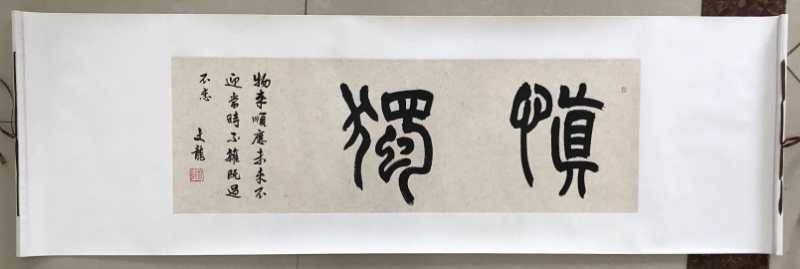 慎獨
物来順應未来不
迎當時不雜既過
不恋
文龍